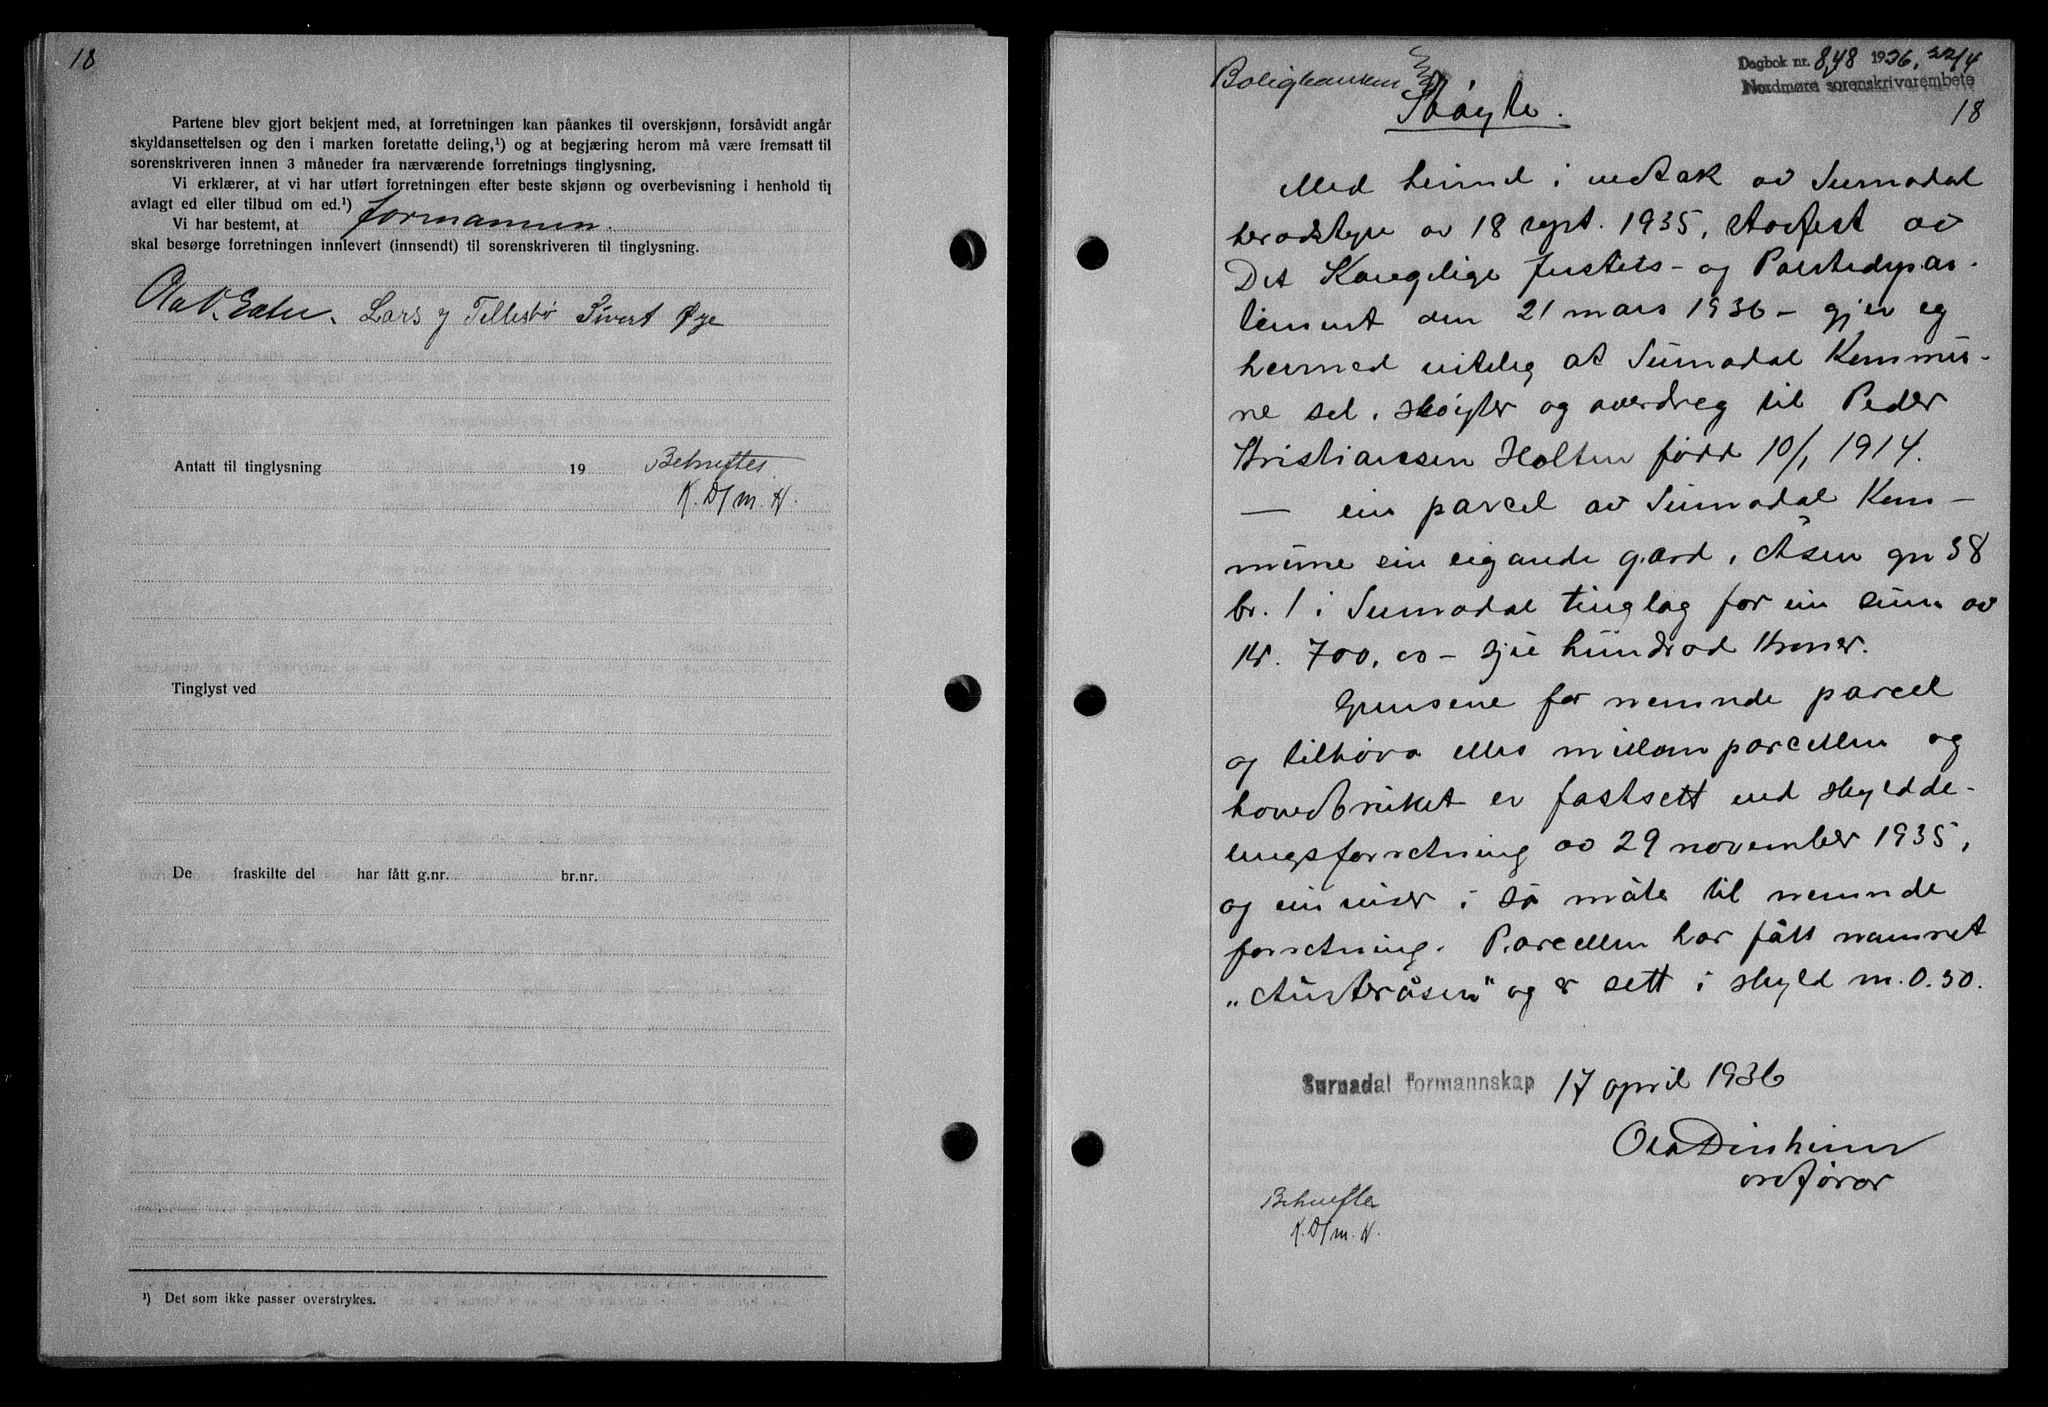 18
Partene blev gjort bekjent med, at forretningen kan påankes til overskjønn, forsåvidt angår
skyldansettelsen og den i marken foretatte deling,¹) og at begjæring herom må være fremsatt til
sorenskriveren innen 3 måneder fra nærværende forretnings tinglysning,
Vi erklærer, at vi har utført forretningen efter beste skjønn og overbevisning i henhold til
avlagt ed eller tilbud om ed.¹)
Vi har bestemt, at formannen.
skal besørge forretningen innlevert (innsendt) til sorenskriveren til tinglysning.
Ola Lars Tellesbø Sivert Øye
Antatt til tinglysning 19 Bekreftes
K. D/m. H.
Tinglyst ved
De fraskilte del har fått g.nr. br.nr.
¹) Det som ikke passer overstrykes.
Dagbok nr. 848 1936, 22/4
Nordmøre sorenskrivarembete
18
Boligbanken
Skøyte.
Med heimel i vedtak av Surnadal
heradstyre av 18 sept. 1935, stadfest av
Det Kongelige Justets- og Politidepar-
tement den 21 mars 1936 - gjer eg
hermed vitelig at Surnadal Kommu-
ne sel, skøyter og overdreg til Peder
Kristiansen Holten född 10/1 1914.
— ein parcel av Surnadal Kom-
mune sin eigande gard, Åsen gn 38
br. 1 i Surnadal tinglag for ein sum av
kr. 700,00 - sju hundrad kroner.
Grensene for nemnde parcel
og tilhøva elles millom parcellen og
hovedbruket er fastsett ved skyldde-
lingsforretning av 29 november 1935,
og ein viser i så måte til nemnde
forretning. Parcellen har fått namnet
„Austeråsen" og er sett i skyld m. 0.30.
Surnadal formannskap 17 april 1936
Ola
ordførar
Bekreftes
K. D/m. H.